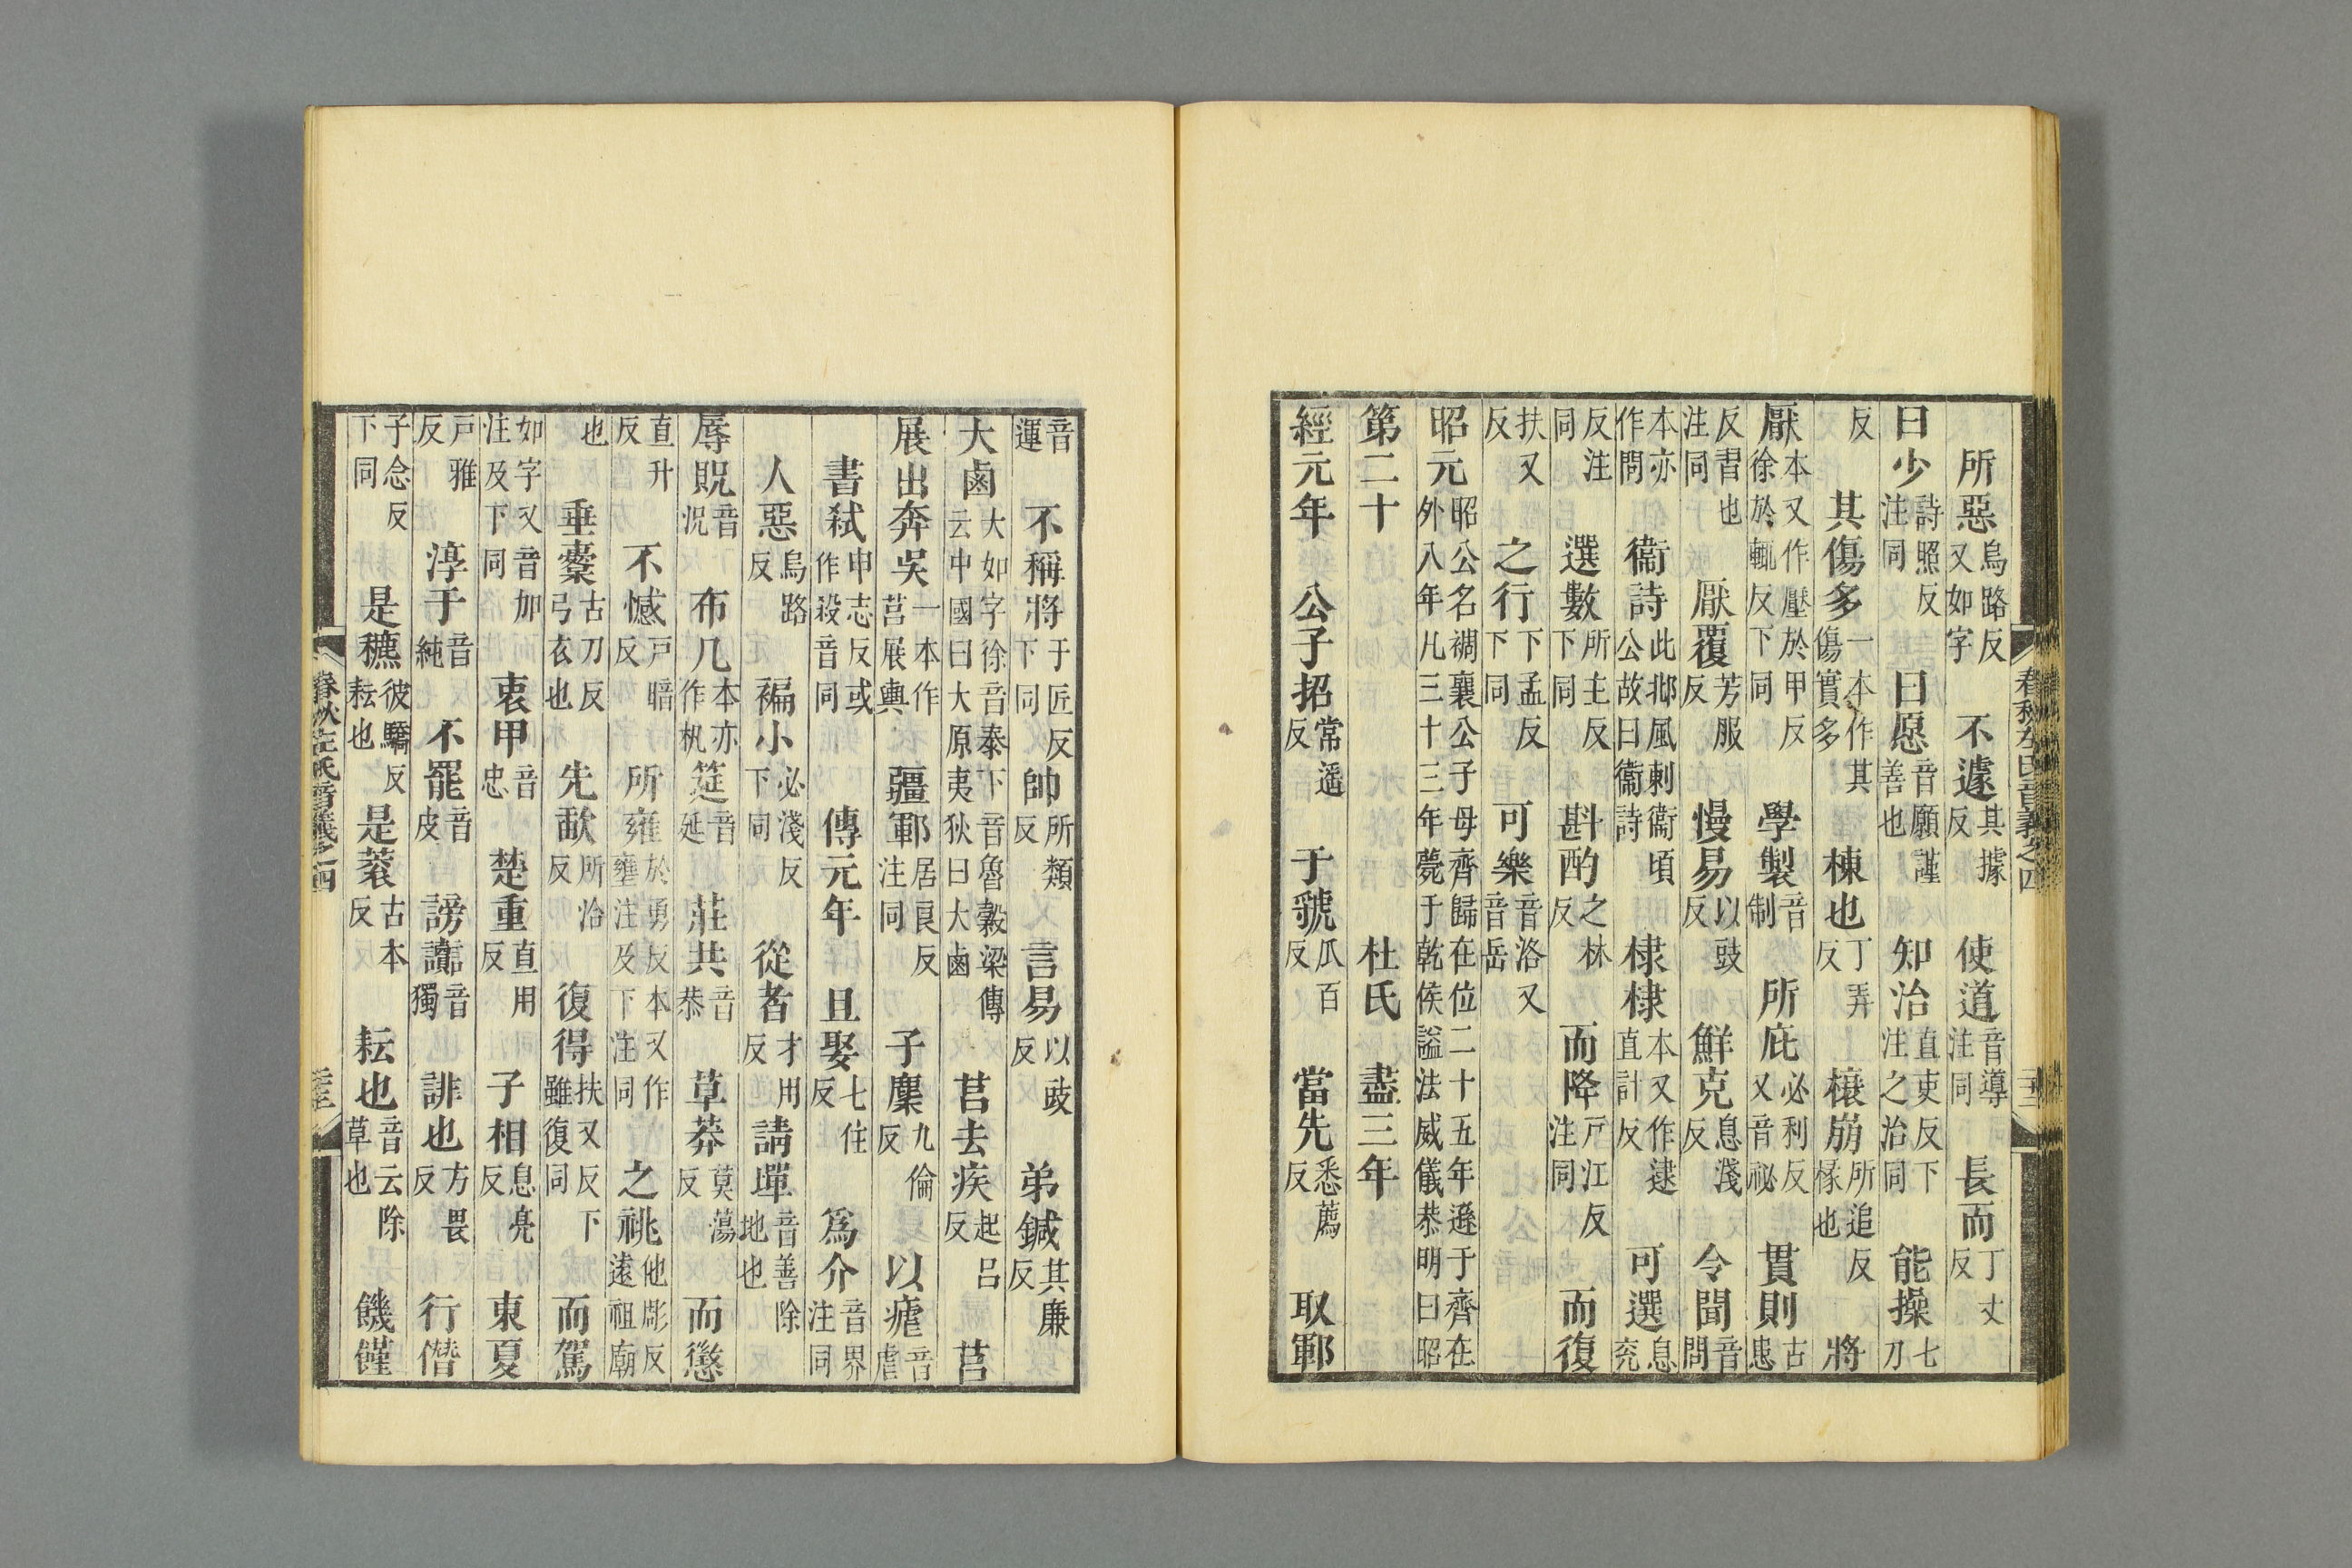 所惡烏路反又如字　不遽其據反　使道音導注同　長而丁丈反
曰少詩照反注同　曰愿音願謹善也　知治直吏反下注之治同　能操七刀
反　其傷多一本作其傷實多　棟也丁弄反　榱崩所追反椽也　將
厭本又作壓於甲反徐於輒反下同　學製音制　所庇必利反又音祕　貫則古患
反習也注同　厭覆芳服反　慢易以豉反　鮮克息淺反　令聞音問
本亦作問　衞詩此邶風刺衞頃公故曰衞詩　棣棣本又作逮直計反　可選息兖
反注同　選數所主反下同　斟酌之林反　而降戸江反注同　而復
扶又反　之行下孟反下同　可樂音洛又音岳
昭元昭公名裯襄公子母齊歸在位二十五年遜于齊在外八年凡三十三年薨于乾侯謚法威儀恭明曰昭
第二十　杜氏　盡三年
經元年　公子招常遥反　于虢瓜百反　當先悉薦反　取鄆
春秋左氏音義之四
音運　不稱將于匠反下同　帥所類反　言易以豉反　弟鍼其廉反
大鹵大如字徐音泰下音魯穀梁傳云中國曰大原夷狄曰大鹵　莒去疾起呂反　莒
展出奔吳一本作莒展輿　疆鄆居良反注同　子麇九倫反　以瘧音虐
書弑申志反或作殺音同　傳元年　且娶七住反　爲介音界注同
人惡烏路反　褊小必淺反下同　從者才用反　請墠音善除地也
辱貺音況　布几本亦作机　筵音延　莊共音恭　草莽莫蕩反　而懲
直升反　不憾戸暗反　所雍於勇反本又作壅注及下注同　之祧他彫反遠祖廟
也　垂櫜古刀反弓衣也　先歃所洽反　復得扶又反下雖復同　而駕
如字又音加注及下同　衷甲音忠　楚重直用反　子相息亮反　東夏
戸雅反　淳于音純　不罷音皮　謗讟音獨　誹也方畏反　行僭
子念反下同　是穮彼驕反耘也　是蓘古本反　耘也音云除草也　饑饉
春秋左氏音義之四